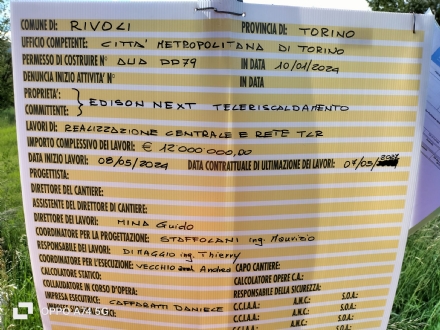 COMUNE DI: RIVOLI PROVINCIA DI: TORINO
UFFICIO COMPETENTE: CITTÀ METROPOLITANA DI TORINO
PERMESSO DI COSTRUIRE N° AUA DD79 IN DATA 10/01/2024
DENUNCIA INIZIO ATTIVITA' N° IN DATA
PROPRIETA':
COMMITTENTE: EDISON NEXT TELERISCALDAMENTO
LAVORI DI: REALIZZAZIONE CENTRALE E RETE TLR
IMPORTO COMPLESSIVO DEI LAVORI: € 12 000 000,00
DATA INIZIO LAVORI: 08/05/2024 DATA CONTRATTUALE DI ULTIMAZIONE DEI LAVORI: 07/05/
PROGETTISTA:
DIRETTORE DEL CANTIERE:
ASSISTENTE DEL DIRETTORE DI CANTIERE:
DIRETTORE DEI LAVORI: MINA Guido
COORDINATORE PER LA PROGETTAZIONE: STAFFOLANI ing. Maurizio
RESPONSABILE DEI LAVORI: DI MAGGIO ing. Thierry
COORDINATORE PER L'ESECUZIONE: VECCHIO Andrea CAPO CANTIERE:
CALCOLATORE STATICO: CALCOLATORE OPERE C.A.:
COLLAUDATORE IN CORSO D'OPERA: RESPONSABILE DELLA SICUREZZA:
IMPRESA ESECUTRICE: CAFFORATTI DANIELE C.C.I.A.A.: A.N.C.: S.O.A.:
C.C.I.A.A.: A.N.C.: S.O.A.:
C.C.I.A.A.: A.N.C.: S.O.A.:
OPPO A74 5G